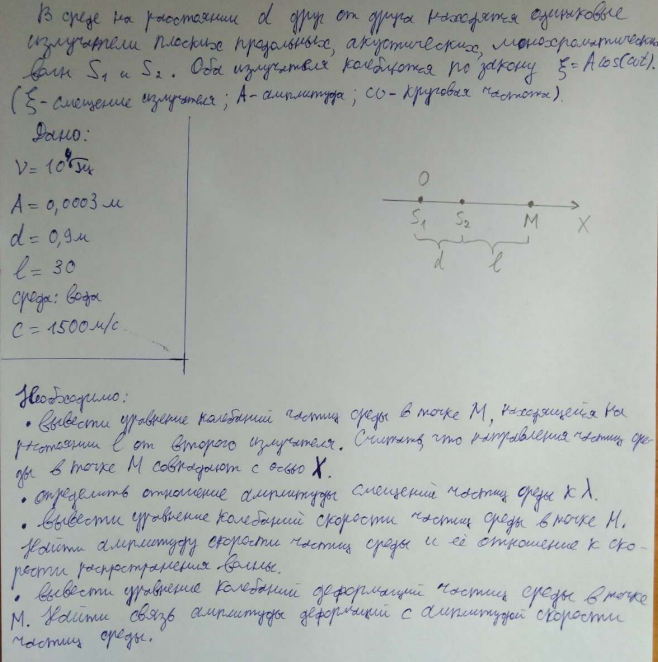 В среде на расстоянии d друг от друга находятся одинаковые
излучатели плоских продольных, акустических, монохроматических
волн S₁ и S₂. Оба излучателя колеблются по закону ξ=Acos(ωt).
(ξ-смещение излучателя; A-амплитуда; ω-круговая частота).
Дано:
ν=10⁴Гц
A=0,0003м
d=0,9м
l=30
среда: вода
c=1500м/с
O
S₁ S₂ M X
d l
Необходимо:
• вывести уравнение колебаний частиц среды в точке M, находящейся на
расстоянии l от второго излучателя. Считать, что направления частиц сре-
ды в точке M совпадают с осью X.
• определить отношение амплитуды смещений частиц среды к λ.
• вывести уравнение колебаний скорости частиц среды в точке M.
Найти амплитуду скорости частиц среды и её отношение к ско-
рости распространения волны.
• вывести уравнение колебаний деформаций частиц среды в точке
M. Найти связь амплитуды деформаций с амплитудой скорости
частиц среды.